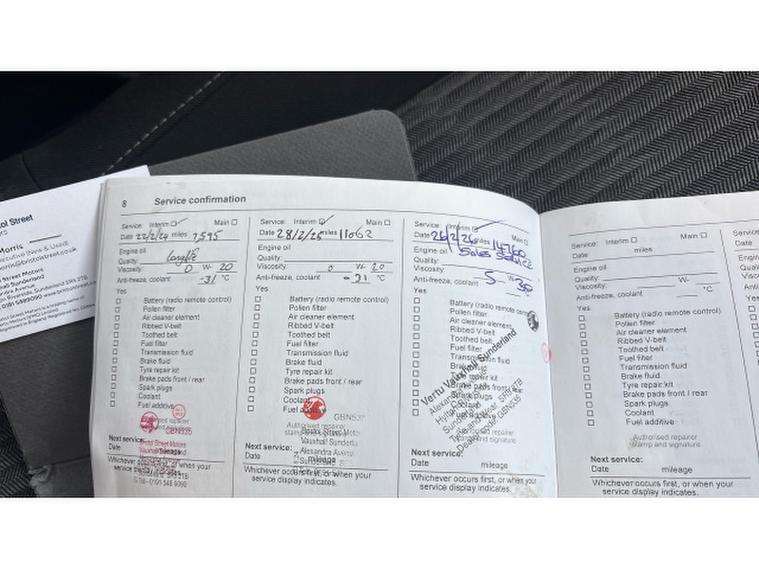 8 Service confirmation
Service: Interim ☑ Main ☐
Date 22/2/24 miles 7,595
Engine oil
Quality: longlife
Viscosity: 0 W- 20
Anti-freeze, coolant -31 °C
Yes
☐ Battery (radio remote control)
☐ Pollen filter
☐ Air cleaner element
☐ Ribbed V-belt
☐ Toothed belt
☐ Fuel filter
☐ Transmission fluid
☐ Brake fluid
☐ Tyre repair kit
☐ Brake pads front / rear
☐ Spark plugs
☐ Coolant
☐ Fuel additive
GBN535
Bristol Street Motors
Next service:
Date mileage
Whichever occurs first, or when your
service display indicates.
Tel - 0191 548 9090
Service: Interim ☑ Main ☐
Date 28/2/25 miles 11062
Engine oil
Quality:
Viscosity: 0 W- 20
Anti-freeze, coolant -31 °C
Yes
☐ Battery (radio remote control)
☐ Pollen filter
☐ Air cleaner element
☐ Ribbed V-belt
☐ Toothed belt
☐ Fuel filter
☐ Transmission fluid
☐ Brake fluid
☐ Tyre repair kit
☐ Brake pads front / rear
☐ Spark plugs
☐ Coolant
☐ Fuel additive
Authorised repairer
Bristol Street Motor
Vauxhall Sunderla
Alexandra Avenu
Next service:
Date mileage
Whichever occurs first, or when your
service display indicates.
Service: Interim ☑ Main ☐
Date 26/2/26 miles 14760
Engine oil Sales Service
Quality:
Viscosity: 5 W- 30
Anti-freeze, coolant °C
Yes
☐ Battery (radio remote control)
☐ Pollen filter
☐ Air cleaner element
☐ Ribbed V-belt
☐ Toothed belt
☐ Fuel filter
☐ Transmission fluid
☐ Brake fluid
☐ Tyre repair kit
☐ Brake pads front / rear
☐ Spark plugs
☐ Coolant
☐ Fuel additive
Vertu Vauxhall Sunderland
Next service:
Date mileage
Whichever occurs first, or when your
service display indicates.
Service: Interim ☐ Main ☐
Date miles
Engine oil
Quality:
Viscosity: W-
Anti-freeze, coolant °C
Yes
☐ Battery (radio remote control)
☐ Pollen filter
☐ Air cleaner element
☐ Ribbed V-belt
☐ Toothed belt
☐ Fuel filter
☐ Transmission fluid
☐ Brake fluid
☐ Tyre repair kit
☐ Brake pads front / rear
☐ Spark plugs
☐ Coolant
☐ Fuel additive
Authorised repairer
stamp and signature
Next service:
Date mileage
Whichever occurs first, or when your
service display indicates.